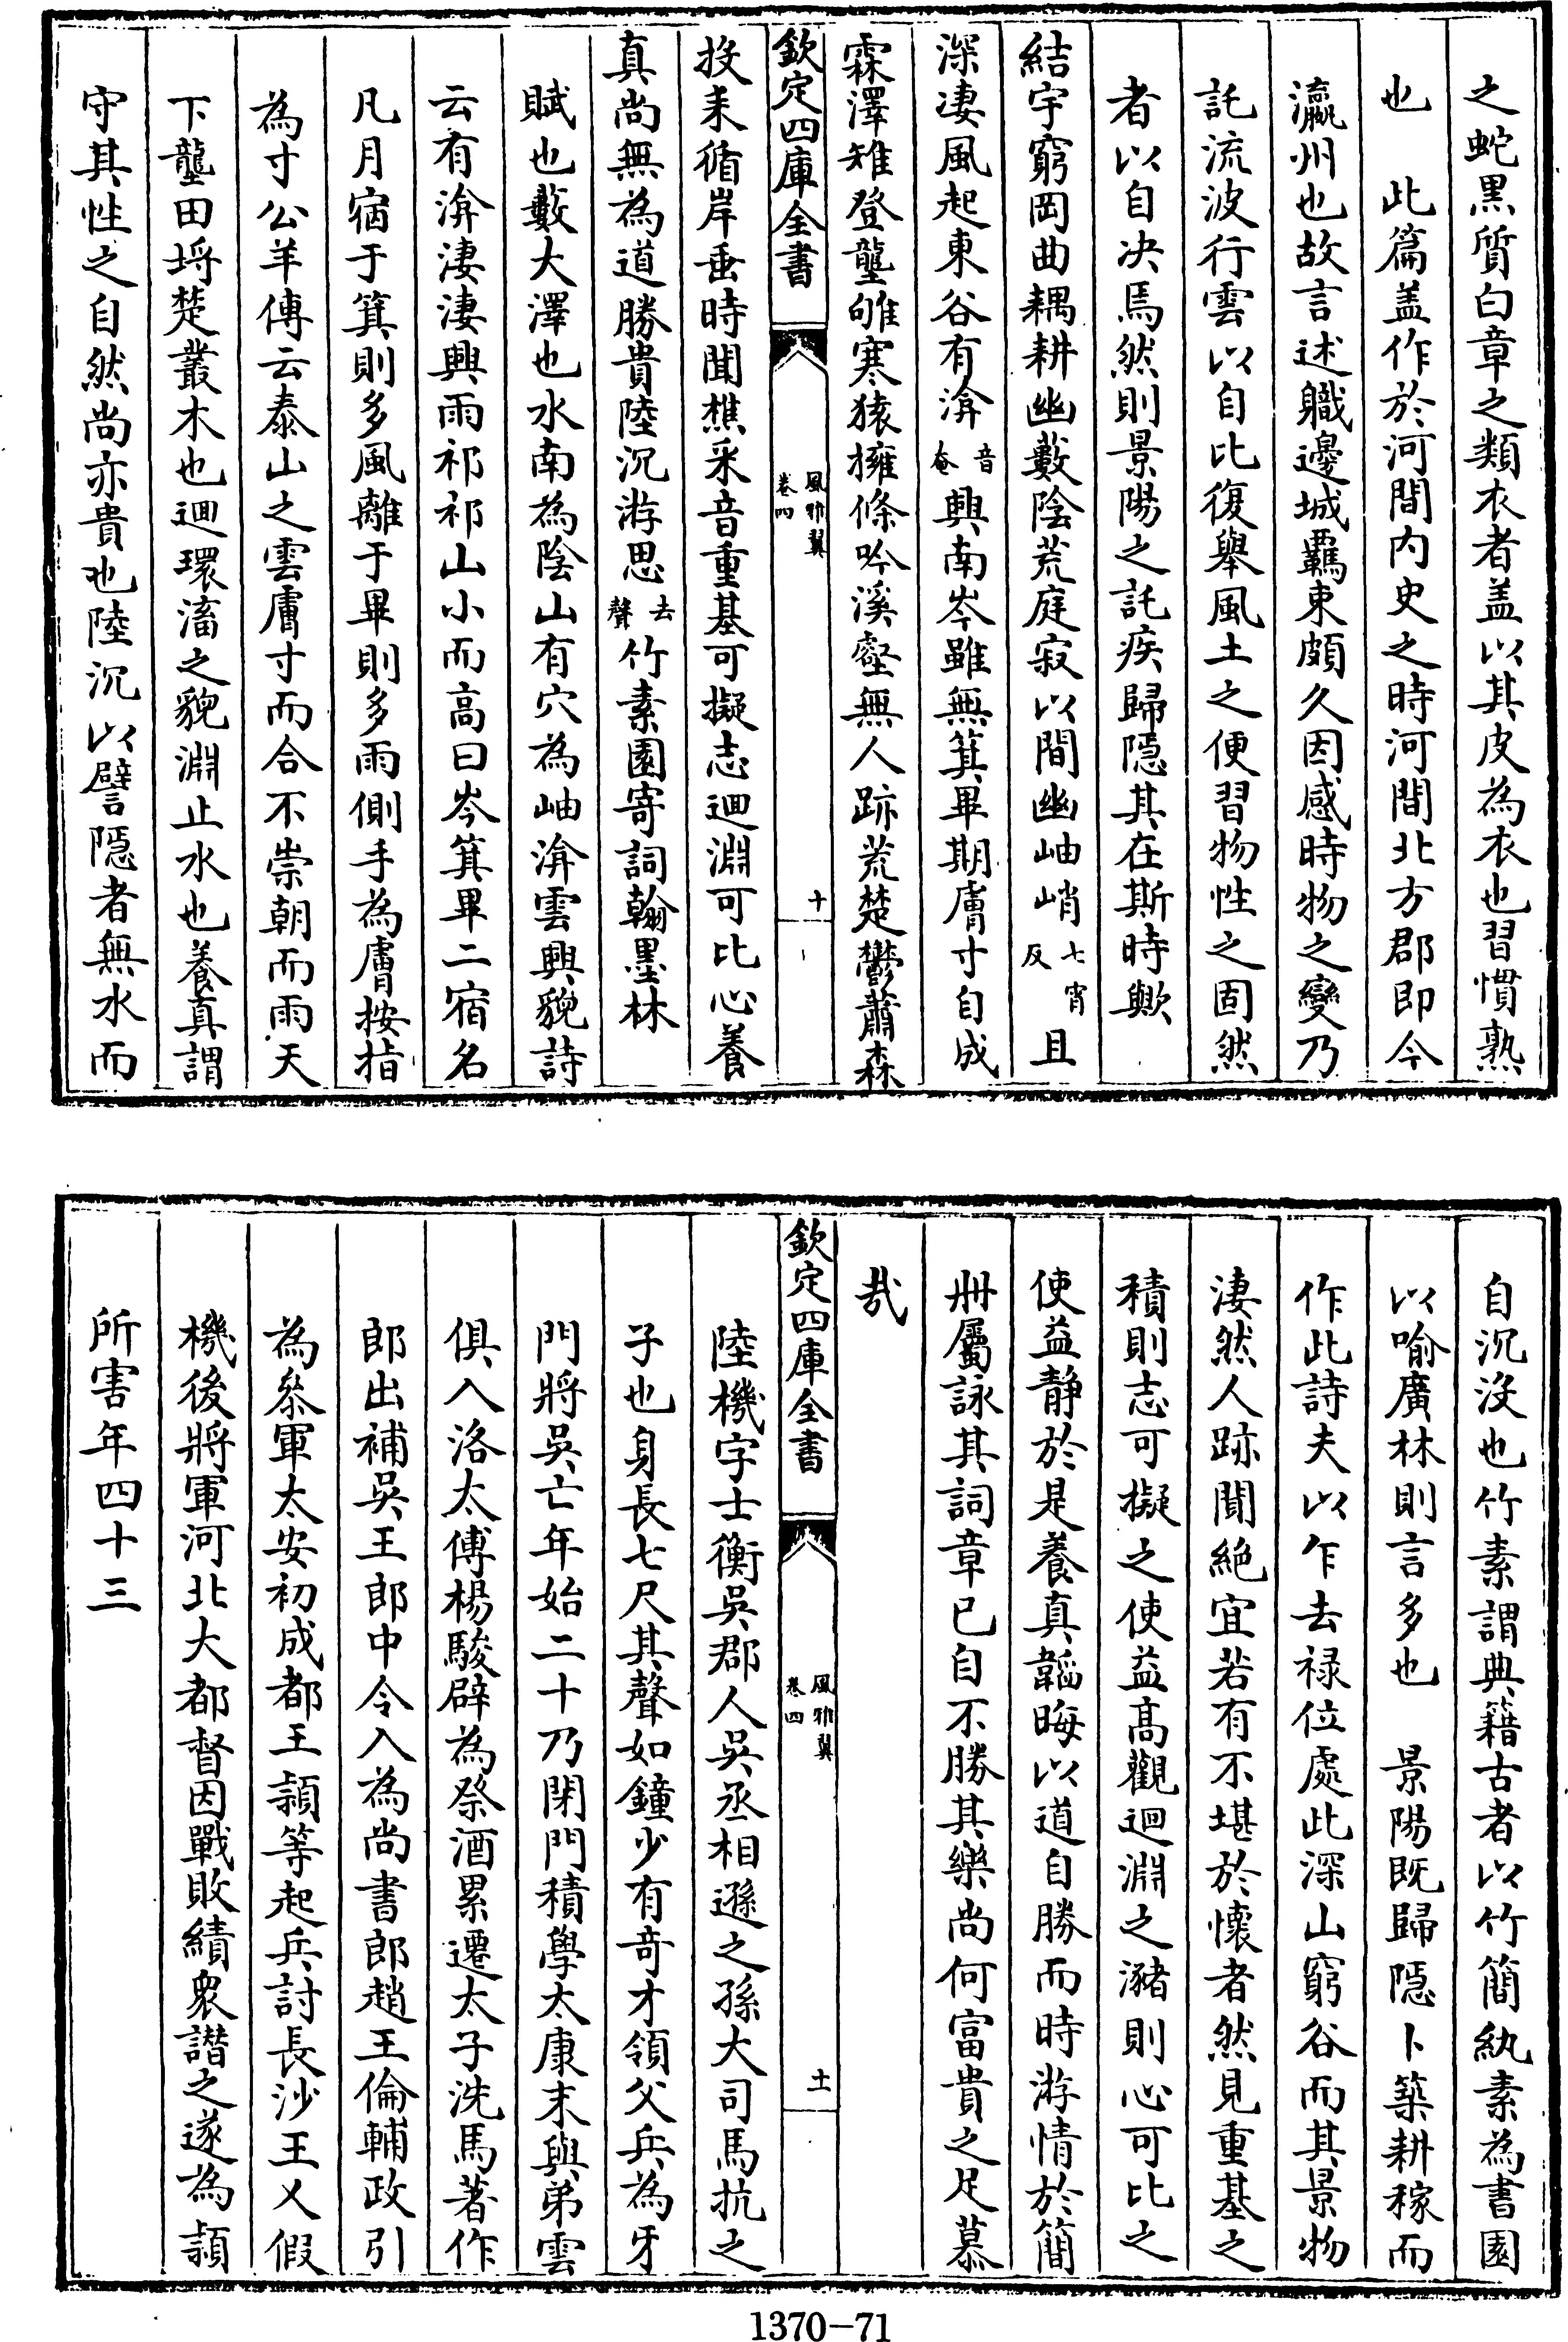 之蛇黒質白章之類衣者盖以其皮為衣也習慣熟
也　此篇盖作於河間内史之時河間北方郡即今
瀛州也故言述職邊城羈束頗久因感時物之變乃
託流波行雲以自比復舉風土之便習物性之固然
者以自决焉然則景陽之託疾歸隱其在斯時歟
結宇窮岡曲耦耕幽藪陰荒庭寂以間幽岫峭七宵反且
深凄風起東谷有渰音奄興南岑雖無箕畢期膚寸自成
霖澤雉登壟雊寒猿擁條吟溪壑無人跡荒楚鬱蕭森
欽定四庫全書
風雅翼
卷四
十
投耒循岸垂時聞樵采音重基可擬志迴淵可比心養
真尚無為道勝貴陸沉游思去聲竹素園寄詞翰墨林
賦也藪大澤也水南為陰山有穴為岫渰雲興貌詩
云有渰淒淒興雨祁祁山小而高曰岑箕畢二宿名
凡月宿于箕則多風離于畢則多雨側手為膚按指
為寸公羊傳云泰山之雲膚寸而合不崇朝而雨天
下壟田埓楚叢木也迴環滀之貌淵止水也養真謂
守其性之自然尚亦貴也陸沉以譬隱者無水而
自沉没也竹素謂典籍古者以竹簡紈素為書園
以喻廣林則言多也　景陽既歸隱卜築耕稼而
作此詩夫以乍去禄位處此深山窮谷而其景物
淒然人跡闃絶宜若有不堪於懷者然見重基之
積則志可擬之使益高觀迴淵之瀦則心可比之
使益静於是養真韜晦以道自勝而時游情於簡
冊屬詠其詞章已自不勝其樂尚何富貴之足慕
哉
欽定四庫全書
風雅翼
卷四
十一
陸機字士衡吳郡人吳丞相遜之孫大司馬抗之
子也身長七尺其聲如鐘少有竒才領父兵為牙
門將吳亡年始二十乃閉門積學太康末與弟雲
俱入洛太傅楊駿辟為祭酒累遷太子洗馬著作
郎出補吳王郎中令入為尚書郎趙王倫輔政引
為叅軍太安初成都王頴等起兵討長沙王乂假
機後將軍河北大都督因戰敗績衆譖之遂為頴
所害年四十三
1370-71